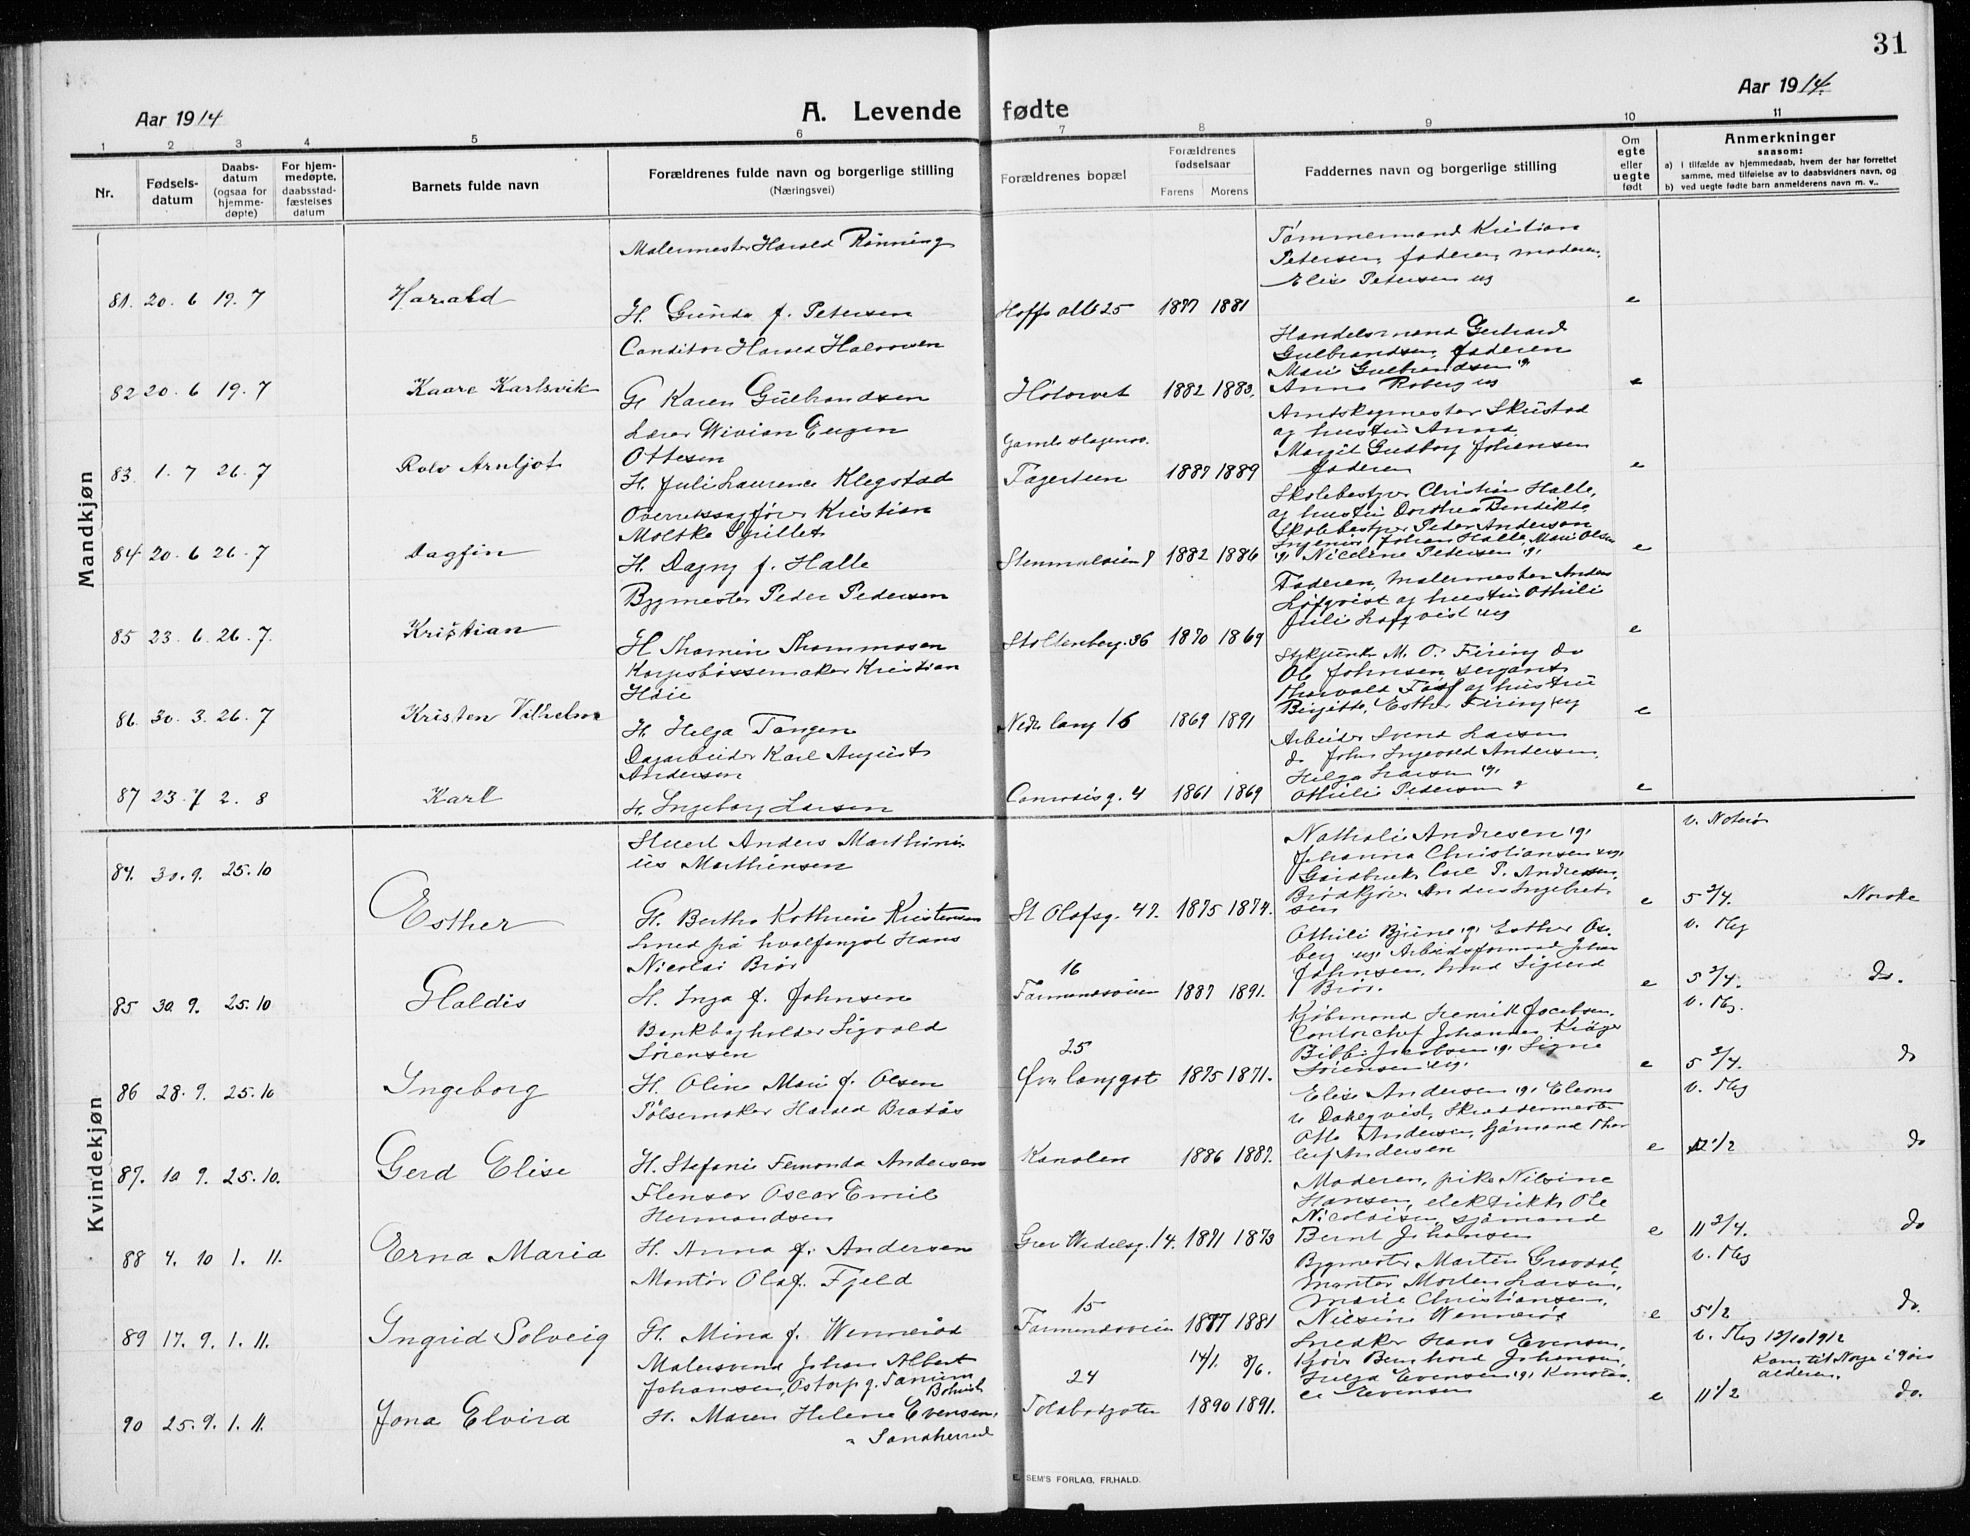 31
Aar 1914
A. Levende fødte
Aar 1914.
1 2 3 4 5 6 7 8 9 10 11
Nr.
Fødsels-
datum
Daabs-
datum
(ogsaa for
hjemme-
døpte)
For hjem-
medøpte,
daabsstad-
fæstelses
datum
Barnets fulde navn
Forældrenes fulde navn og borgerlige stilling
(Næringsvei)
Forældrenes bopæl
Forældrenes
fødselsaar
Farens Morens
Faddernes navn og borgerlige stilling
Om
egte
eller
uegte
født
Anmerkninger
saasom:
a) I tilfælde av hjemmedaab, hvem der har forrettet
samme, med tilføielse av to daabsvidners navn, og
b) ved uegte fødte barn anmelderens navn m. v..
Mandkjøn
81. 20. 6 19. 7
Harald
Malermester Harald Rönning
H. Gunda f. Petersen
Hoffs alle 25 1877 1881
Tømmermand Kristian
Petersen, faderen, moderen,
Elise Petersen ug
e
82 20. 6 19. 7
Kaare Karlsvik
Conditor Harald Halvorsen
H. Karen Gulbrandsen
Høtorvet 1882 1883.
Handelsmand Gerhard
Gulbrandsen, faderen
Marie Gulbrandsen g.
Anna Roberg ug
e
83. 1. 7 26. 7
Rolv Arnljot
Lærer Wivian Eugen
Ottesen
H. Juli Laurence Klegstad
Gamle Hagenv.
Fagerteen 1887 1889
og hustru Anna
Margit Gudborg Johansen
faderen
e
84 20. 6 26. 7
Dagfin
Overretssagfører Kristian
Moltke Spillet
H. Dagny f. Halle
1882 1886
Skolebestyrer Christian Halle,
og hustru Dorthea Bendikte
Skolebestyrer Peder Anderson
Ingeniør Johan Halle, Marie Olsen
ug. Nicoline Petersen ug.
e
85 23. 6. 26. 7.
Kristian
Bygmester Peder Pedersen
H. Thomine Thommasen
Stoltenberg. 36 1870 1869
Faderen, Malermester Anders
Löfqvist og hustru Othilie
Juli Lofqvist ug
e
86. 30. 3. 26. 7
Kristen Vilhelm
Korpsbøssemaker Kristian
Hoie
H. Helga Tangen
Nedr lang 16 1869 1891
Stykjunker M. O. Firing do
Ole Johnsen, sergant
Thorvald Foss og hustru
Birgitte, Esther Firing ug
e
87 23. 7 2. 8
Karl
Dagarbeider Karl August
Andersen
H. Ingeborg Larsen
Conradis g. 4 1861 1869
Arbeider Svend Larsen
do John Ingevald Andersen,
Helga Larsen g.
Othilie Pedersen g
e
Kvindekjøn
84. 30. 9. 25. 10
Esther
Stuert Anders Marthini-
us Marthinsen
H. Bertha Kathrine Kristensen
St Olafsg. 47. 1875 1874.
Nathalie Andresen g.
Johanna Christiansen ug.
Gaardbruker Carl P. Andresen,
Brødkjører Anders Ingebret-
sen
e
v. Noterø
5 3/4. Norske
v. Meg
85 30. 9. 25. 10
Haldis
Smed på hvalfangst Hans
Nicolai Brør
H. Inga f. Johnsen
16
Farmandsveien 1887 1891.
Othilie Bjune g. Esther Os-
berg ug. Arbeidsformand Johan
Johnsen, Smed Sigurd
Brør.
e
5 3/4. do.
v. Meg.
86 28. 9. 25. 10
Ingeborg
Bankbogholder Sigvald
Sörensen
H. Oline Marie f. Olsen
25
Øvr langgat 1875 1871.
Kjøbmand Henrik Jacobsen,
Contorchef Johannes Kröger
Bibbi Jacobsen g. Signe
Sörensen ug.
e
5 3/4. do
v. Meg
87. 10 9. 25. 10.
Gerd Elise
Pølsemaker Harald Bratås
H. Stefanie Femonda Andersen
Kanalen 1886 1887.
Elise Andersen g. Eleono
v Dahlqvist, Skræddermester
Otto Andersen, sjømand Thor
leif Andersen
e
12 1/2 do
88 4. 10 1. 11.
Erna Maria
Flenser Oscar Emil
Hermandsen
H. Anna f. Andersen
Grev Wedelsg. 14. 1871 1873
Moderen, pike Nilsine
Hansen, elektrikk Ole
Nicolaisen, sjømand
Bernt Johansen
e
11 3/4. do
v. Meg
89 17. 9. 1. 11.
Ingrid Solveig
Montör Olaf. Fjeld
H. Mina f. Wennerød
15
Farmandsveien 1877 1881
Bygmester Martin Gravdal,
montør Morten Larsen,
Marie Christiansen,
Nilsine Wennerød
e
5 1/2 do.
v. Meg 13/10 1912
90 25. 9. 1. 11.
Jona Elvira
Malersvend Johan Albert
Johansen, Ostorp g. Tanum
Bohuslen
H. Maren Helene Evensen,
" Sandherred
24
Toldbodgaten
14/1. 8/6.
1890 1891.
Snedker Hans Evensen,
Kjører Bernhard Johansen,
Helga Evensen g.
Evensen
e
Kom til Norge i 9 års
alderen.
11 1/2 do.
E. SEM'S FORLAG, FR.HALD.